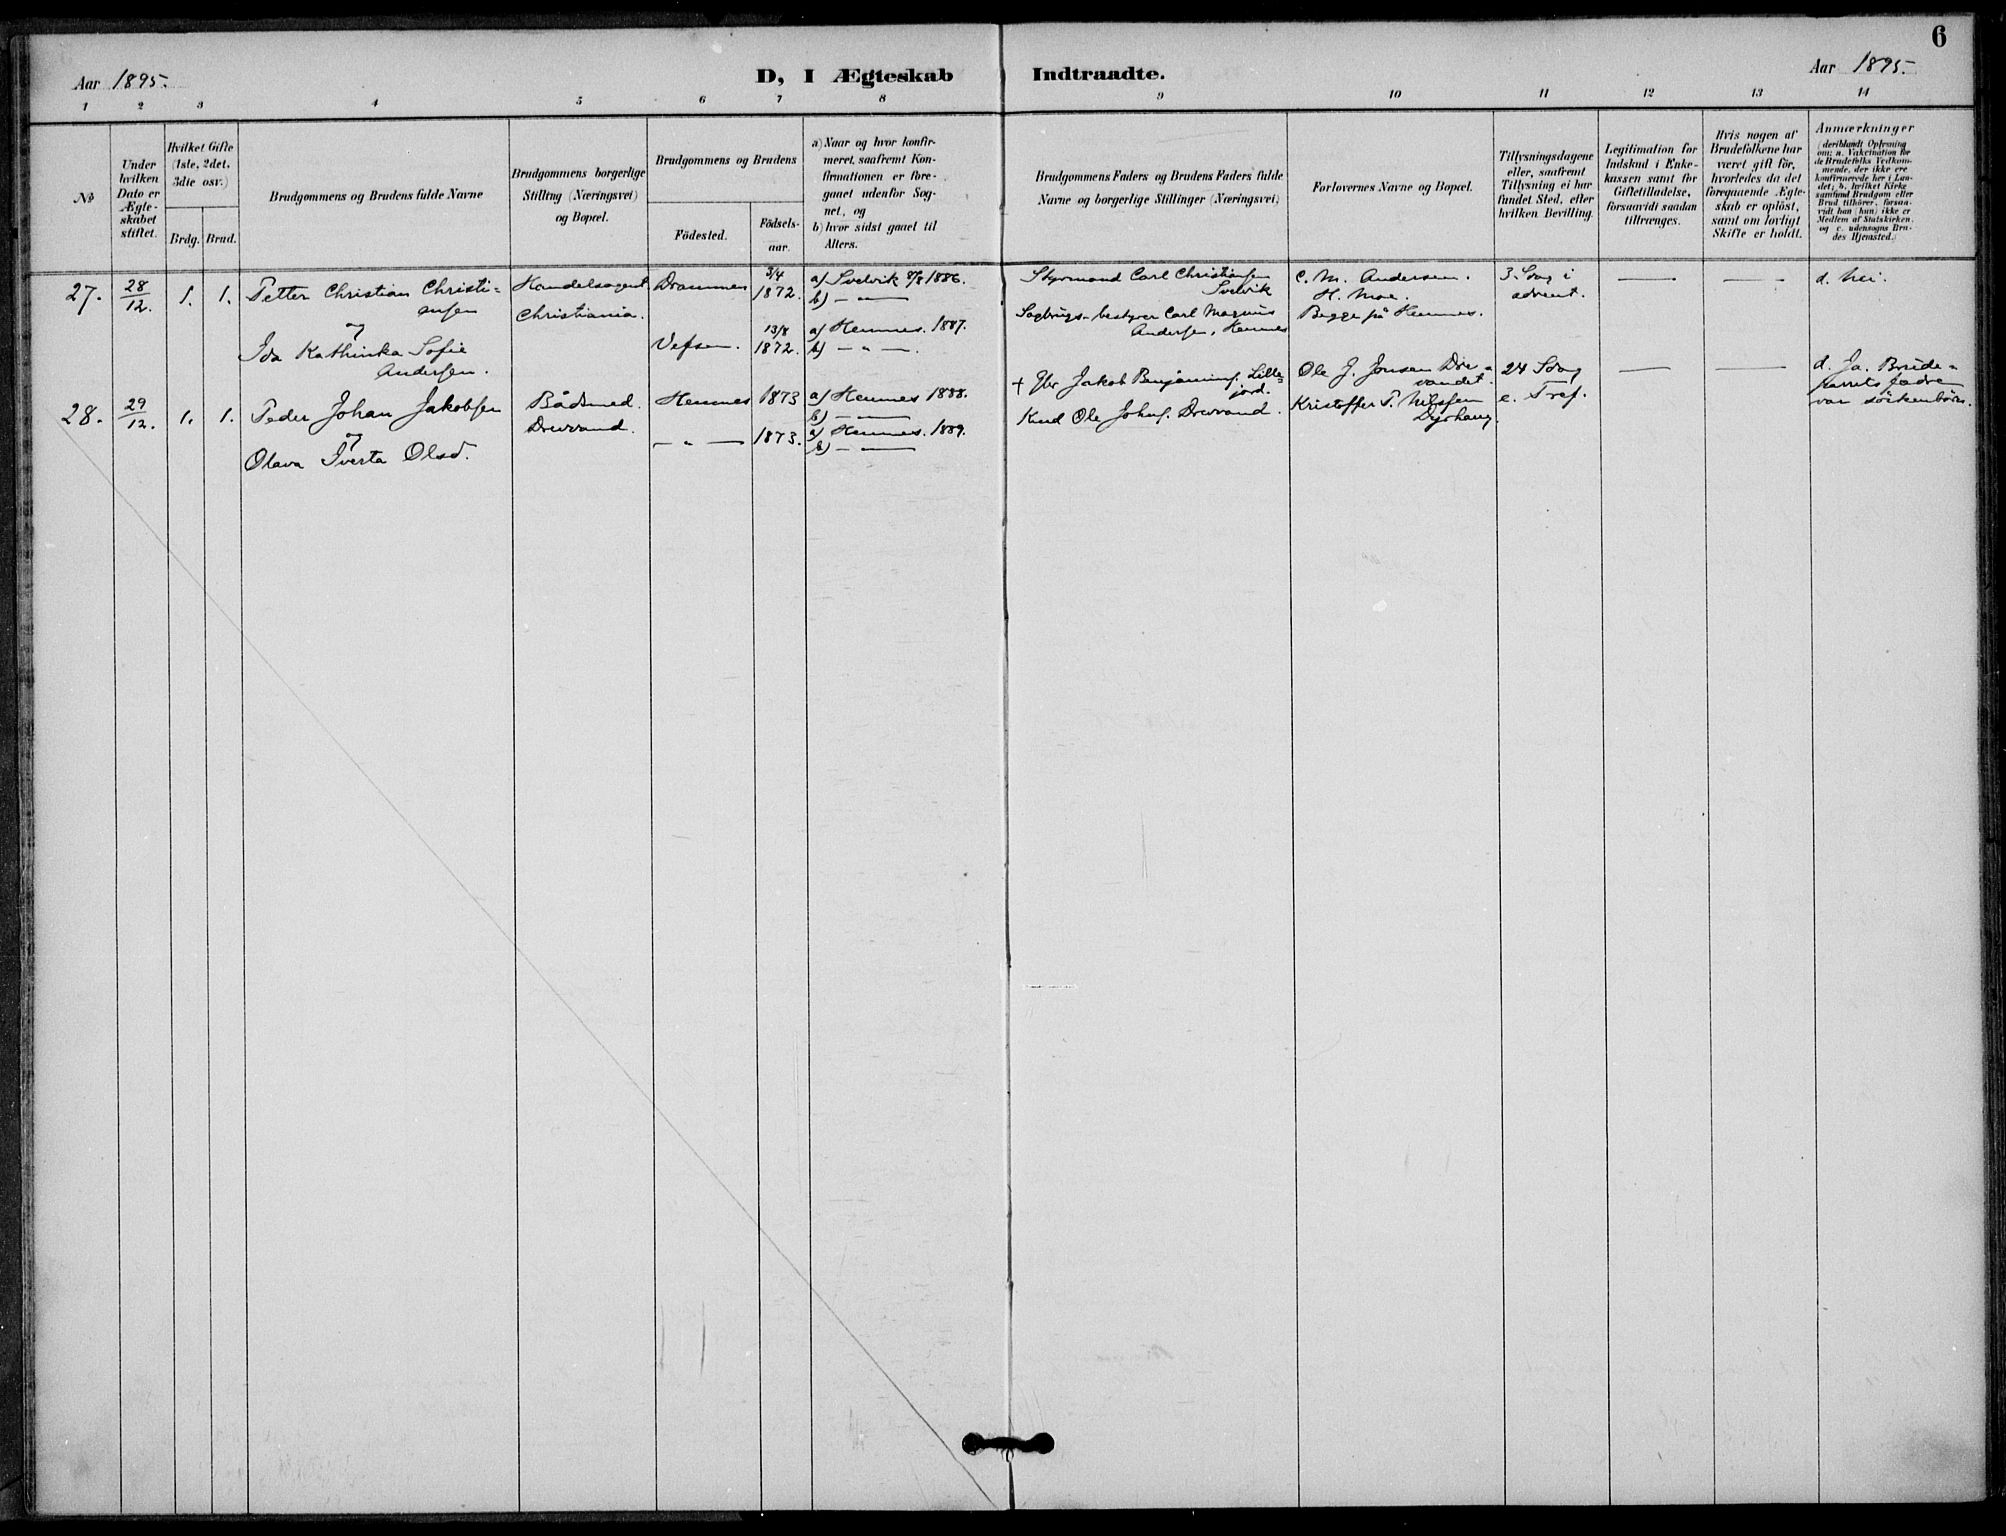 6
Aar 1895.
D, I Ægteskab Indtraadte.
Aar 1895.
1 2 3 4 5 6 7 8 9 10 11 12 13 14
№
Under
hvilken
Dato er
Ægte-
skabet
stiftet.
Hvilket Gifte
(1ste, 2det,
3die osv.)
Brdg. Brud.
Brudgommens og Brudens fulde Navne
Brudgommens borgerlige
Stilling (Næringsvei)
og Bopæl.
Brudgommens og Brudens
Fødested.
Fødsels-
aar.
a) Naar og hvor konfir-
meret, saafremt Kon-
firmationen er fore-
gaaet udenfor Sog-
net, og
b) hvor sidst gaaet til
Alters.
Brudgommens Faders og Brudens Faders fulde
Navne og borgerlige Stillinger (Næringsvei)
Forlovernes Navne og Bopæl.
Tillysningsdagene
eller, saafremt
Tillysning ei har
fundet Sted, efter
hvilken Bevilling.
Legitimation for
Indskud i Enke-
kassen samt for
Giftetilladelse,
forsaavidt saadan
tiltrænges.
Hvis nogen af
Brudefolkene har
været gift før,
hvorledes da det
foregaaende Ægte-
skab er opløst,
samt om lovligt
Skifte er holdt.
Anmærkninger
(deriblandt Oplysning
om: a. Vakcination for
de Brudefolks Vedkom-
mende, der ikke ere
konfirmerede her i Lan-
det; b. hvilket Kirke
samfund Brudgom eller
Brud tilhører, forsaa-
vidt han (hun) ikke er
Medlem af Statskirken,
og c. udensogns Bru-
des Hjemsted.)
27.
28/12.
1. 1.
Petter Christian Christi=
ansen
og
Ida Kathinka Sofie
Andersen.
Handelsagent
Christiania.
Drammen
Vefsen.
3/4
1872.
13/8
1872.
a) Svelvik 8/8 1886.
b) — " —
a) Hemnes. 1887.
b) — " —.
Styrmand Carl Christiansen
Svelvik
Sagbrugs-bestyrer Carl Magnus
Andersen, Hemnes
C. M. Andersen.
H. Moe.
Begge på Hemnes.
3. Sdag i
advent.
—
—
d. nei.
28.
29/12.
1. 1.
Peder Johan Jakobsen
og
Olava Iverta Olsd.
Bådsmed.
Drevvand.
Hemnes
— " —
1873
1873.
a) Hemnes 1888.
b) — " —
a) Hemnes. 1889.
b) — " —
+ Gbr Jakob Benjaminsf. Lille=
jord.
Knud Ole Johnsf. Drevvand.
Ole J. Jonsen Dre=
vandet.
Kristoffer P. Nilssen
Dyrhaug.
24 Sdag
e. Tref.
—
—
d. Ja. Brude=
parrets fædre
var söskenbörn.